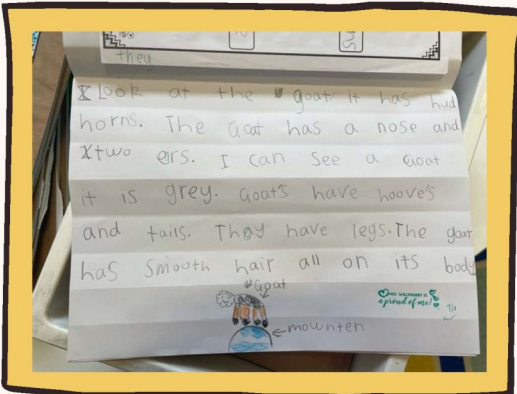 they
Look at the goat it has hud
horns. The Goat has a nose and
two eirs. I can see a Goat
it is grey. Goat's have hoove's
and tails. They have legs. The goat
has smooth hair all on its body
Goat
proud of me!
mounten